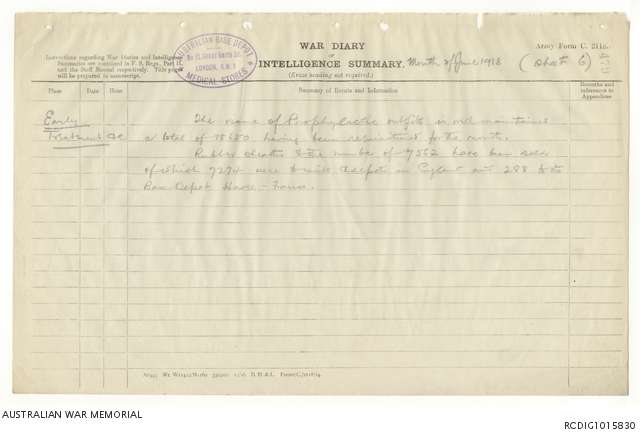 WAR DIARY
or
INTELLIGENCE SUMMARY.
(Erase heading not required.)
Month of June 1918
Army Form C. 2118.
(Sheet 6)
Instructions regarding War Diaries and Intelligence
Summaries are contained in F. S. Regs., Part II.
and the Staff Manual respectively. Title pages
will be prepared in manuscript.
AUSTRALIAN BASE DEPOT
LONDON, S.W.1
MEDICAL STORES
Place
Date
Hour
Summary of Events and Information
Remarks and
references to
Appendices
Early
Treatment &c
The issue of Prophylactic outfits is well maintained
a total of having been requisitioned for the month.
Rubber to the number of 7562 have been
of which 7274 were to in England and 288 to the
Base Depot Havre - France.
AUSTRALIAN WAR MEMORIAL
RCDIG1015830